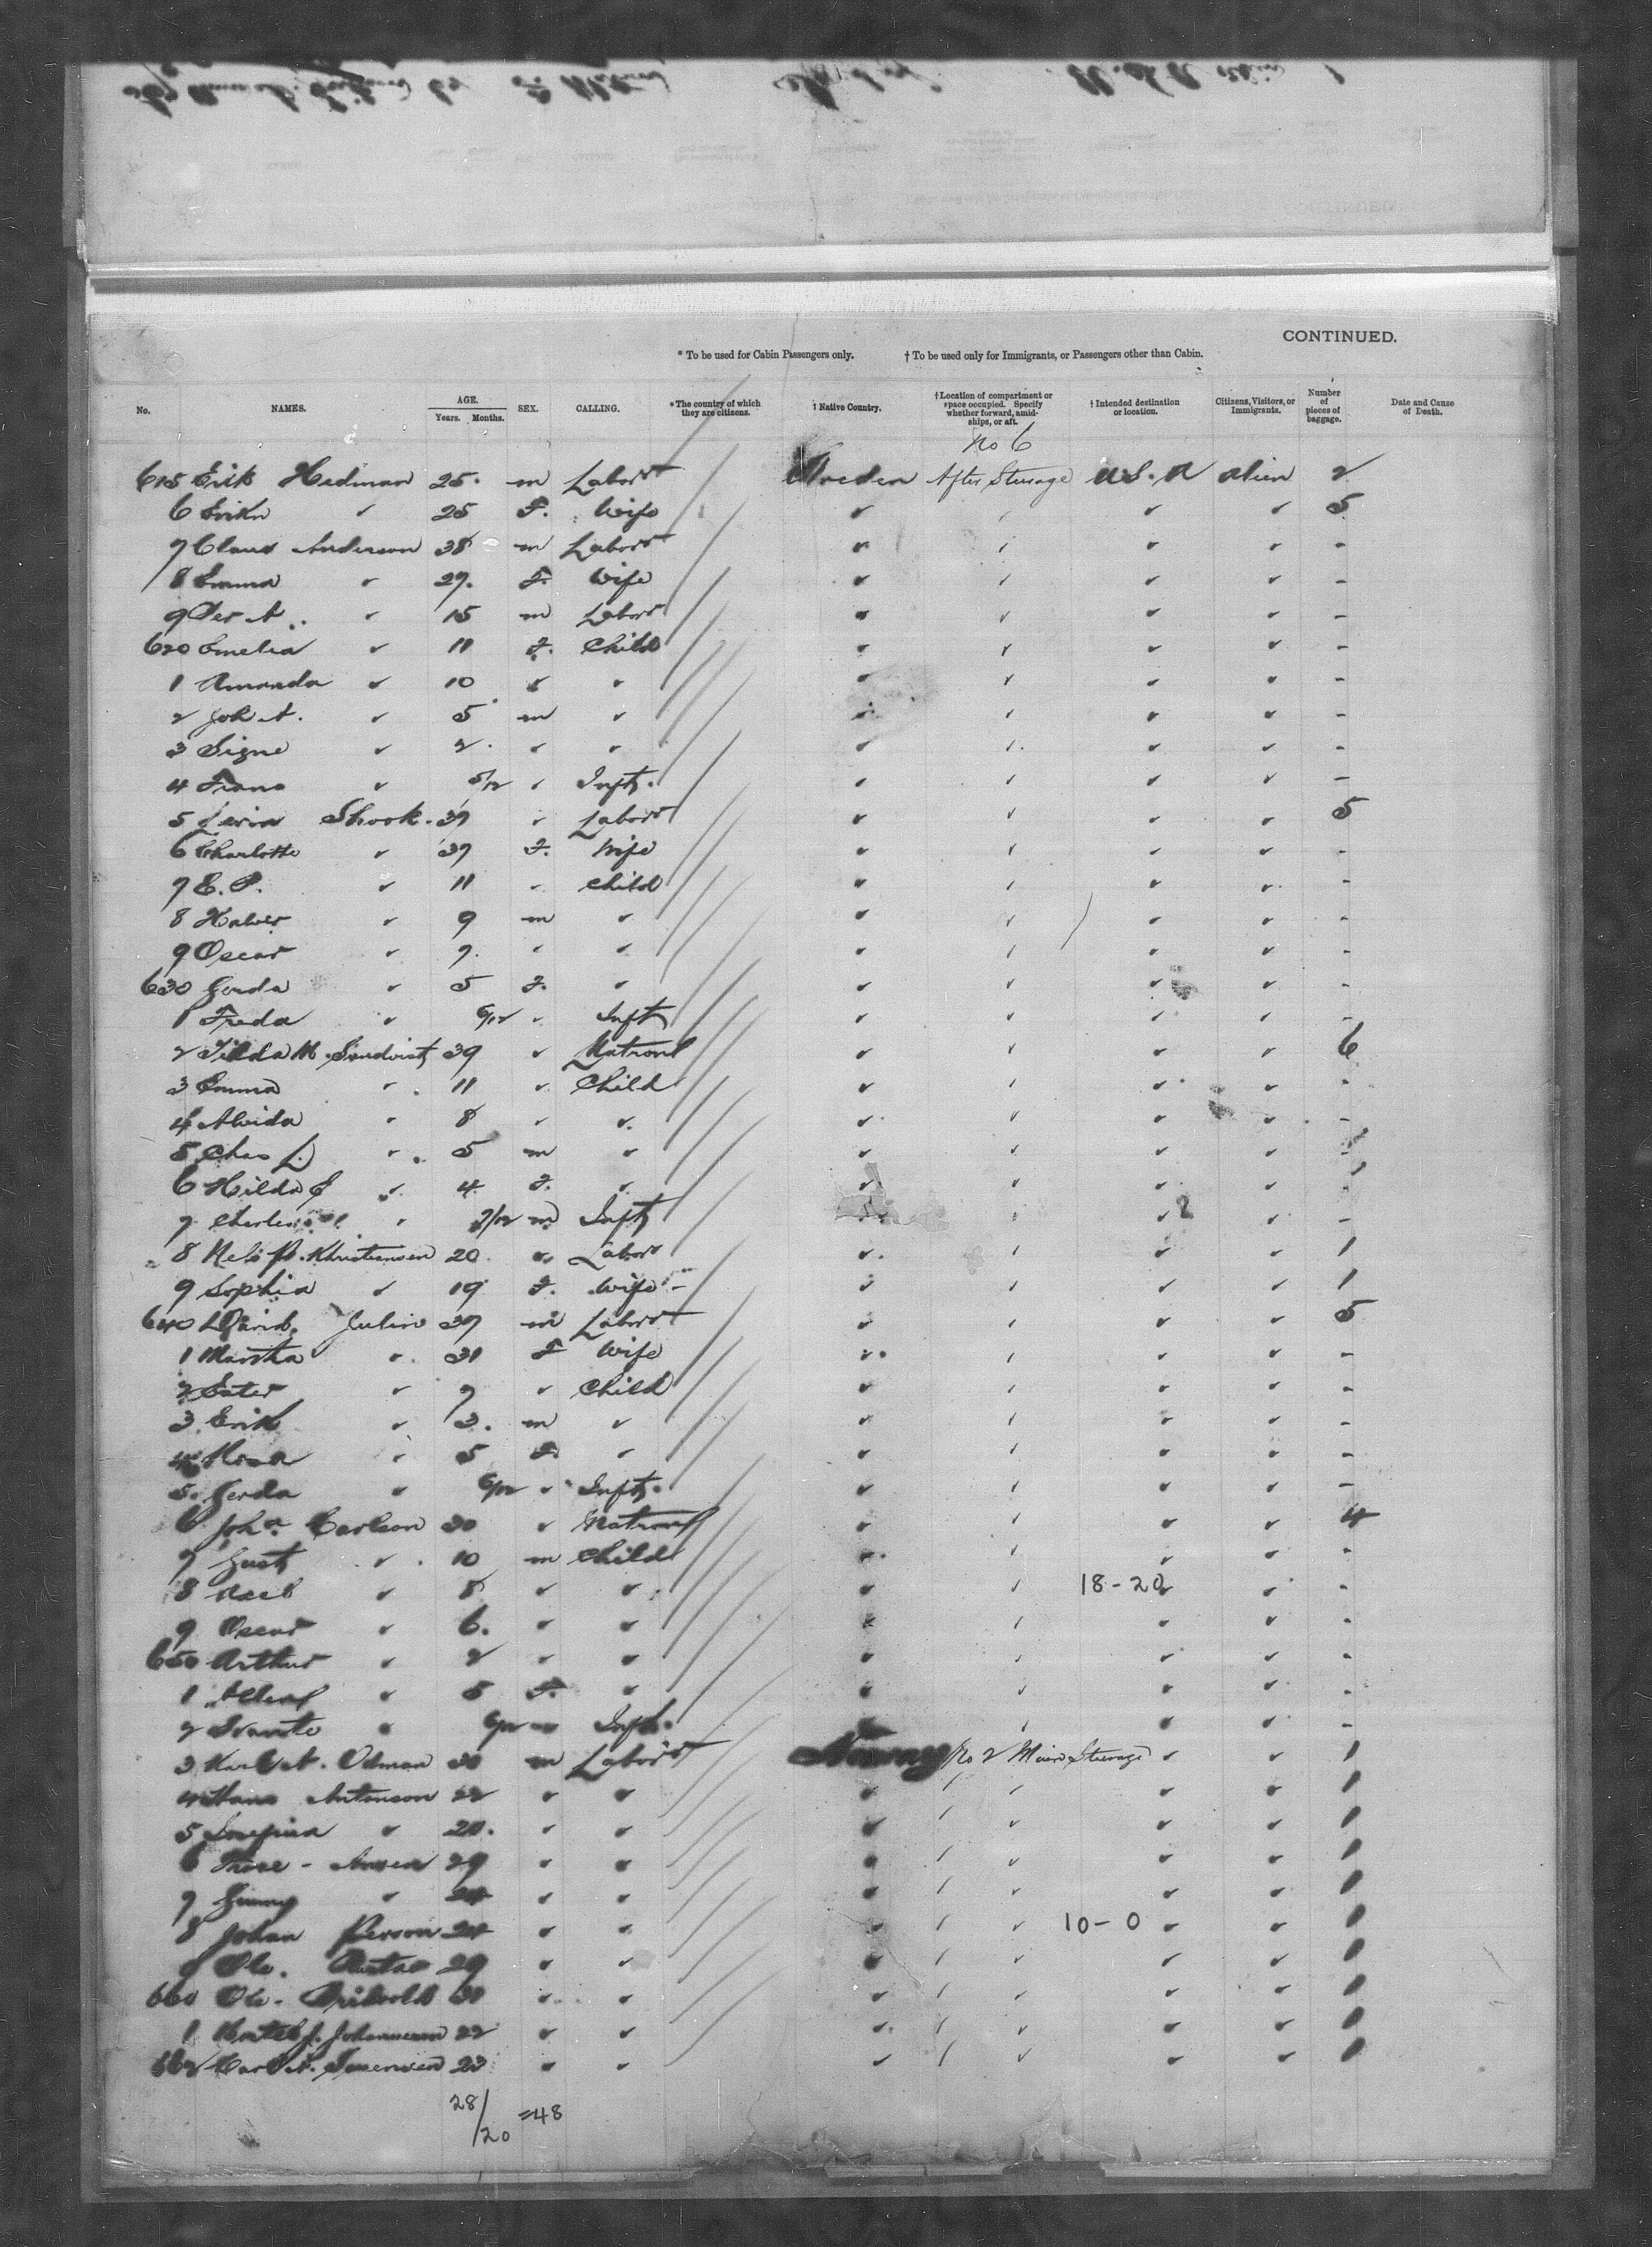 CONTINUED.
* To be used for Cabin Passengers only. † To be used only for Immigrants, or Passengers other than Cabin.
No. NAMES. AGE. Years. Months. SEX. CALLING. * The country of which they are citizens. † Native Country. † Location of compartment or space occupied. Specify whether forward, amidships, or aft. † Intended destination or location. Citizens, Visitors, or Immigrants. Number of pieces of baggage. Date and Cause of Death.
No 6
615 Erik Hedman 25 m Laborr Sweden After Steerage U.S.A alien 2
6 " 25 F. Wife " " " " 5
7 Claus Anderson 38 m Laborr " " " " -
8 Emma " 27. F. Wife " " " " -
9 Per A. " 15 m Laborr " " " " -
620 Emelia " 11 F. Child " " " " -
1 Amanda " 10 " " " " " " -
2 Joh A. " 5 m " " " " " -
3 Signe " 2 " " " " " " -
4 Frans " 5/12 " Inft. " " " " -
5 Shook 37 " Laborr " " " " 5
6 Charlotte " 37 F. Wife " " " " -
7 E. P. " 11 " Child " " " " -
8 " 9 m " " " " " -
9 Oscar " 7. " " " " " " -
630 Gerda " 5 F. " " " " " -
1 Freda " 6/12 " Inft " " " " -
2 Tilda M. 39 " Matron " " " " 6
3 Emma " 11 " Child " " " " -
4 Alvida " 8 " " " " " " -
5 Chas L. " 5 m " " " " " -
6 Hilda J " 4 F. " " " " " -
7 " 7/12 m Inft " " " " -
8 Nels P. Khristiansen 20 " Labor " " " " 1
9 Sophia " 19 F. Wife " " " " 1
640 Julin 37 m Laborr " " " " 5
1 Martha " 31 F Wife " " " " -
2 " 7 " Child " " " " -
3 Erik " 3. m " " " " " -
4 " 5 F. " " " " " -
5 Gerda " 6/12 " Inft. " " " " -
6 Joh Carlson 30 " Matron " " " " 4
7 Gust " 10 m Child " " " " -
8 Axel " 8 " " " " 18-20 " " -
9 Oscar " 6. " " " " " " -
650 Arthur " 2 " " " " " " -
1 " 5 F. " " " " " -
2 " 6/12 m Inft. " " " " -
3 Karl A. Odman 30 m Laborr Norway No 2 Main Steerage " " 1
4 Hans Antonson 22 " " " " " " " 1
5 " 20. " " " " " " " 1
6 29 " " " " " " " 1
7 " 24 " " " " " " " 1
8 Johan Person 24 " " " " " 10-0 " " 1
9 Ole. 29 " " " " " " " 1
660 Ole. 31 " " " " " " " 1
1 J. Johannesen 22 " " " " " " " 1
662 Carl A. 23 " " " " " " " 1
28/20 =48